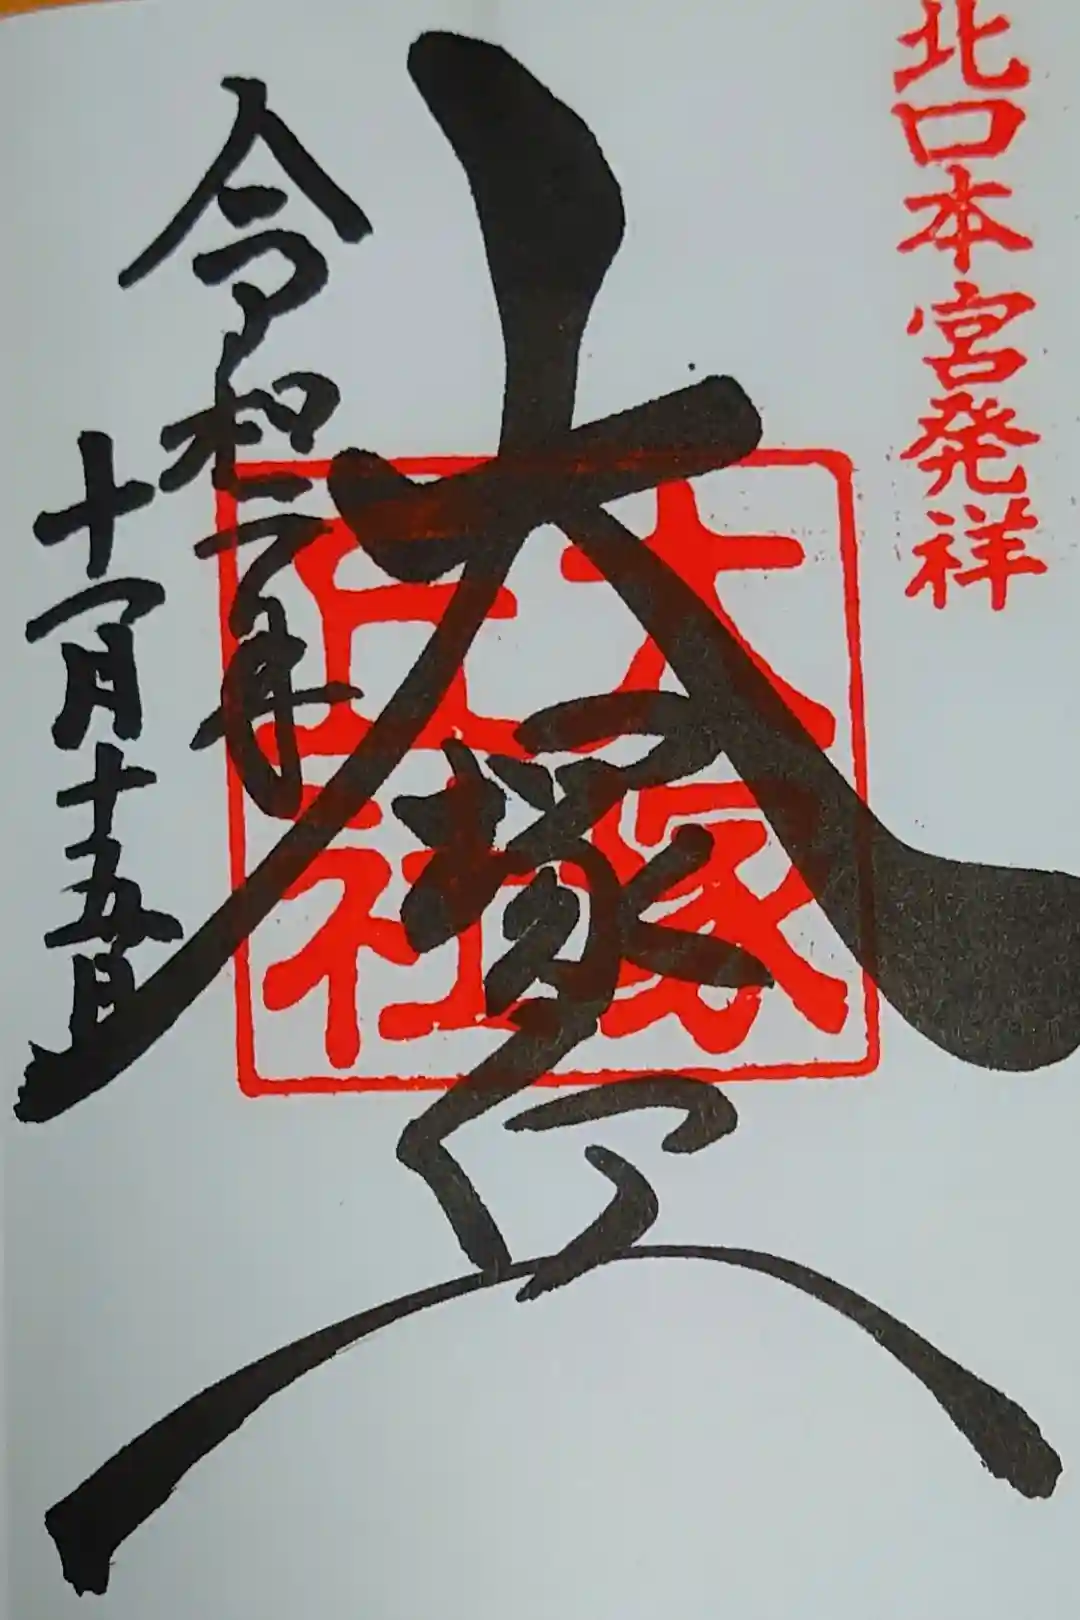 北口本宮発祥
大塚丘
大冢
丘社
令和二年
十一月十五日